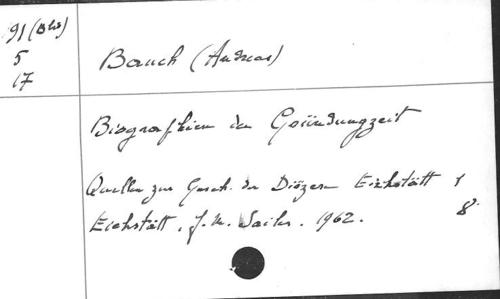 91 (Bls)
5
17
Bauch (Andreas)
Biographien der Gründungzeit
Quellen zur Gesch. der Diözese Eichstätt 1
Eichstätt, J. M. Sailer. 1962. 8°